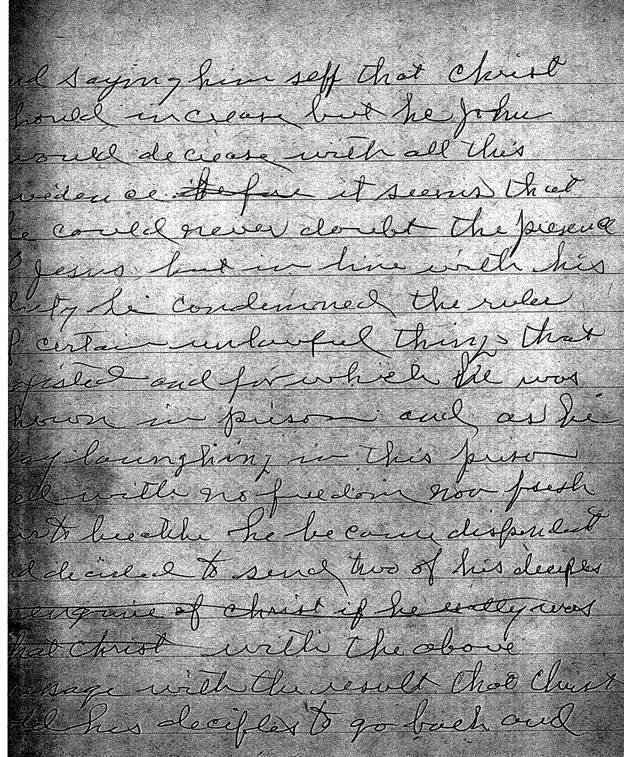 nd saying him self that Christ
hould increase but he John
would decrease with all this
evidence it seems that
he could never doubt the presence
Jesus but in line with his
he condemned the ruler
certain unlawful things that
existed and for which he was
hown in prison and as he
lay in this prison
ell with no freedom nor fresh
he became dispondent
d decided to send two of his deciples
enquire of christ if he really was
hat Christ with the above
message with the result that Christ
his deciples to go back and